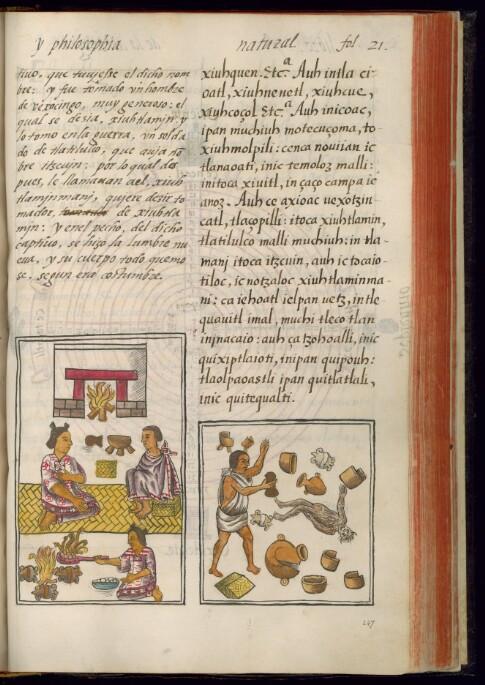 y philosophia natural. fol 21.
tiuo, que tuuiesse el dicho nom
bre: y fue tomado vn hombre
de vexocingo, muy generoso: el
qual se desia, xiuhtlamjn: y
lo tomo en la guerra, vn solda
do de tlatilulco, que auja nõ
bre itzcujn: por lo qual des
pues, le llamauan a el, xiuh
tlamjnmanj, quiere desir to
mador, de xiuhtla
mjn: y en el pecho, del dicho
captiuo, se hizo la lumbre nu
eua, y su cuerpo todo quemo
se, segun era costumbre.
xiuhquen. Etc.ª Auh intla ci-
oatl, xiuhnenetl, xiuhcue,
xiuhcoçol Etc.ª Auh inicoac,
ipan muchiuh motecuçoma, to-
xiuhmolpili: cenca nouiian ic
tlanaoati, inic temoloz malli:
initoca xiuitl, in çaço campa ie
anoz. Auh ce axioac uexotzin-
catl, tlaçopilli: itoca xiuhtlamin,
tlatilulco malli muchiuh: in tla-
manj itoca itzcuin, auh ic tocaio-
tiloc, ic notzaloc xiuhtlaminma-
ni: ca iehoatl ielpan uetz, in tle
quauitl imal, muchi tleco tlan
in jnacaio: auh ça tzohoalli, inic
quixiptlaioti, inipan quipouh:
tlaolpaoastli ipan quitlatlali,
inic quitequalti.
247